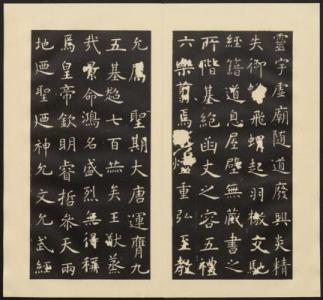 靈宇虛廟隨道廢興炎精
失御飛蝟起羽檄交馳
經籍道息屋壁無藏書之
所階基絕函丈之容五禮
六樂翦焉燼重弘至教
允屬聖期大唐運膺九
五基超七百赫矣王猷蒸
哉景命鴻名盛烈無得稱
焉皇帝欽明睿哲參天兩
地迺聖迺神允文允武經